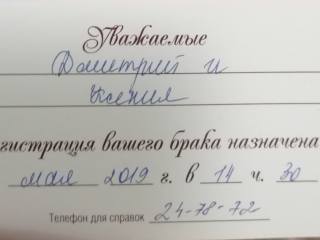 Уважаемые
Дмитрий и
Ксения
гистрация вашего брака назначена
мая 2019 г. в 14 ч. 30
Телефон для справок 24-78-72